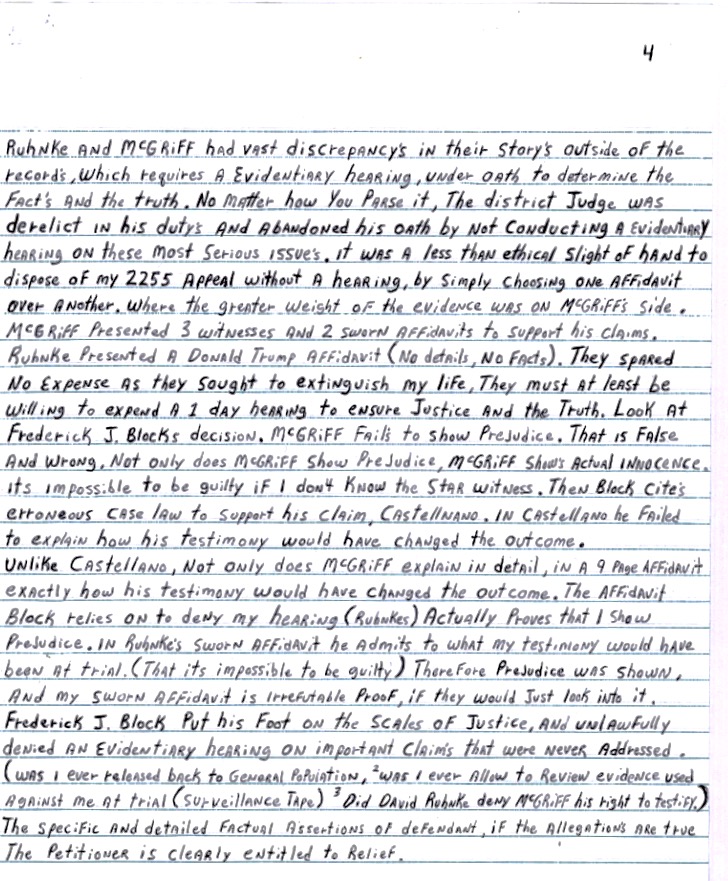 4
Ruhnke and McGriff had vast discrepancy's in their story's outside of the
records, which requires a evidentiary hearing, under oath to determine the
fact's and the truth. No matter how you parse it, the district judge was
derelict in his duty's and abandoned his oath by not conducting a evidentiary
hearing on these most serious issue's. It was a less than ethical slight of hand to
dispose of my 2255 appeal without a hearing, by simply choosing one affidavit
over another. Where the greater weight of the evidence was on McGriff's side.
McGriff presented 3 witnesses and 2 sworn affidavits to support his claims.
Ruhnke presented a Donald Trump affidavit (no details, no facts). They spared
no expense as they sought to extinguish my life, they must at least be
willing to expend a 1 day hearing to ensure justice and the truth. Look at
Frederick J. Blocks decision. McGriff fail's to show prejudice. That is false
and wrong, not only does McGriff show prejudice, McGriff show's actual innocence.
Its impossible to be guilty if I don't know the star witness. Then Block cite's
erroneous case law to support his claim, Castellnano. In Castellano he failed
to explain how his testimony would have changed the outcome.
Unlike Castellano, not only does McGriff explain in detail, in a 9 page affidavit
exactly how his testimony would have changed the outcome. The affidavit
Block relies on to deny my hearing (Ruhnkes) actually proves that I show
prejudice. In Ruhnke's sworn affidavit he admits to what my testimony would have
been at trial. (That its impossible to be guilty) Therefore prejudice was shown,
and my sworn affidavit is irrefutable proof, if they would just look into it.
Frederick J. Block put his foot on the scales of justice, and unlawfully
denied an evidentiary hearing on important claim's that were never addressed.
(Was I ever released back to general population, ²was I ever allow to review evidence used
against me at trial (surveillance tape) ³Did David Ruhnke deny McGriff his right to testify.)
The specific and detailed factual assertions of defendant, if the allegation's are true
the petitioner is clearly entitled to relief.